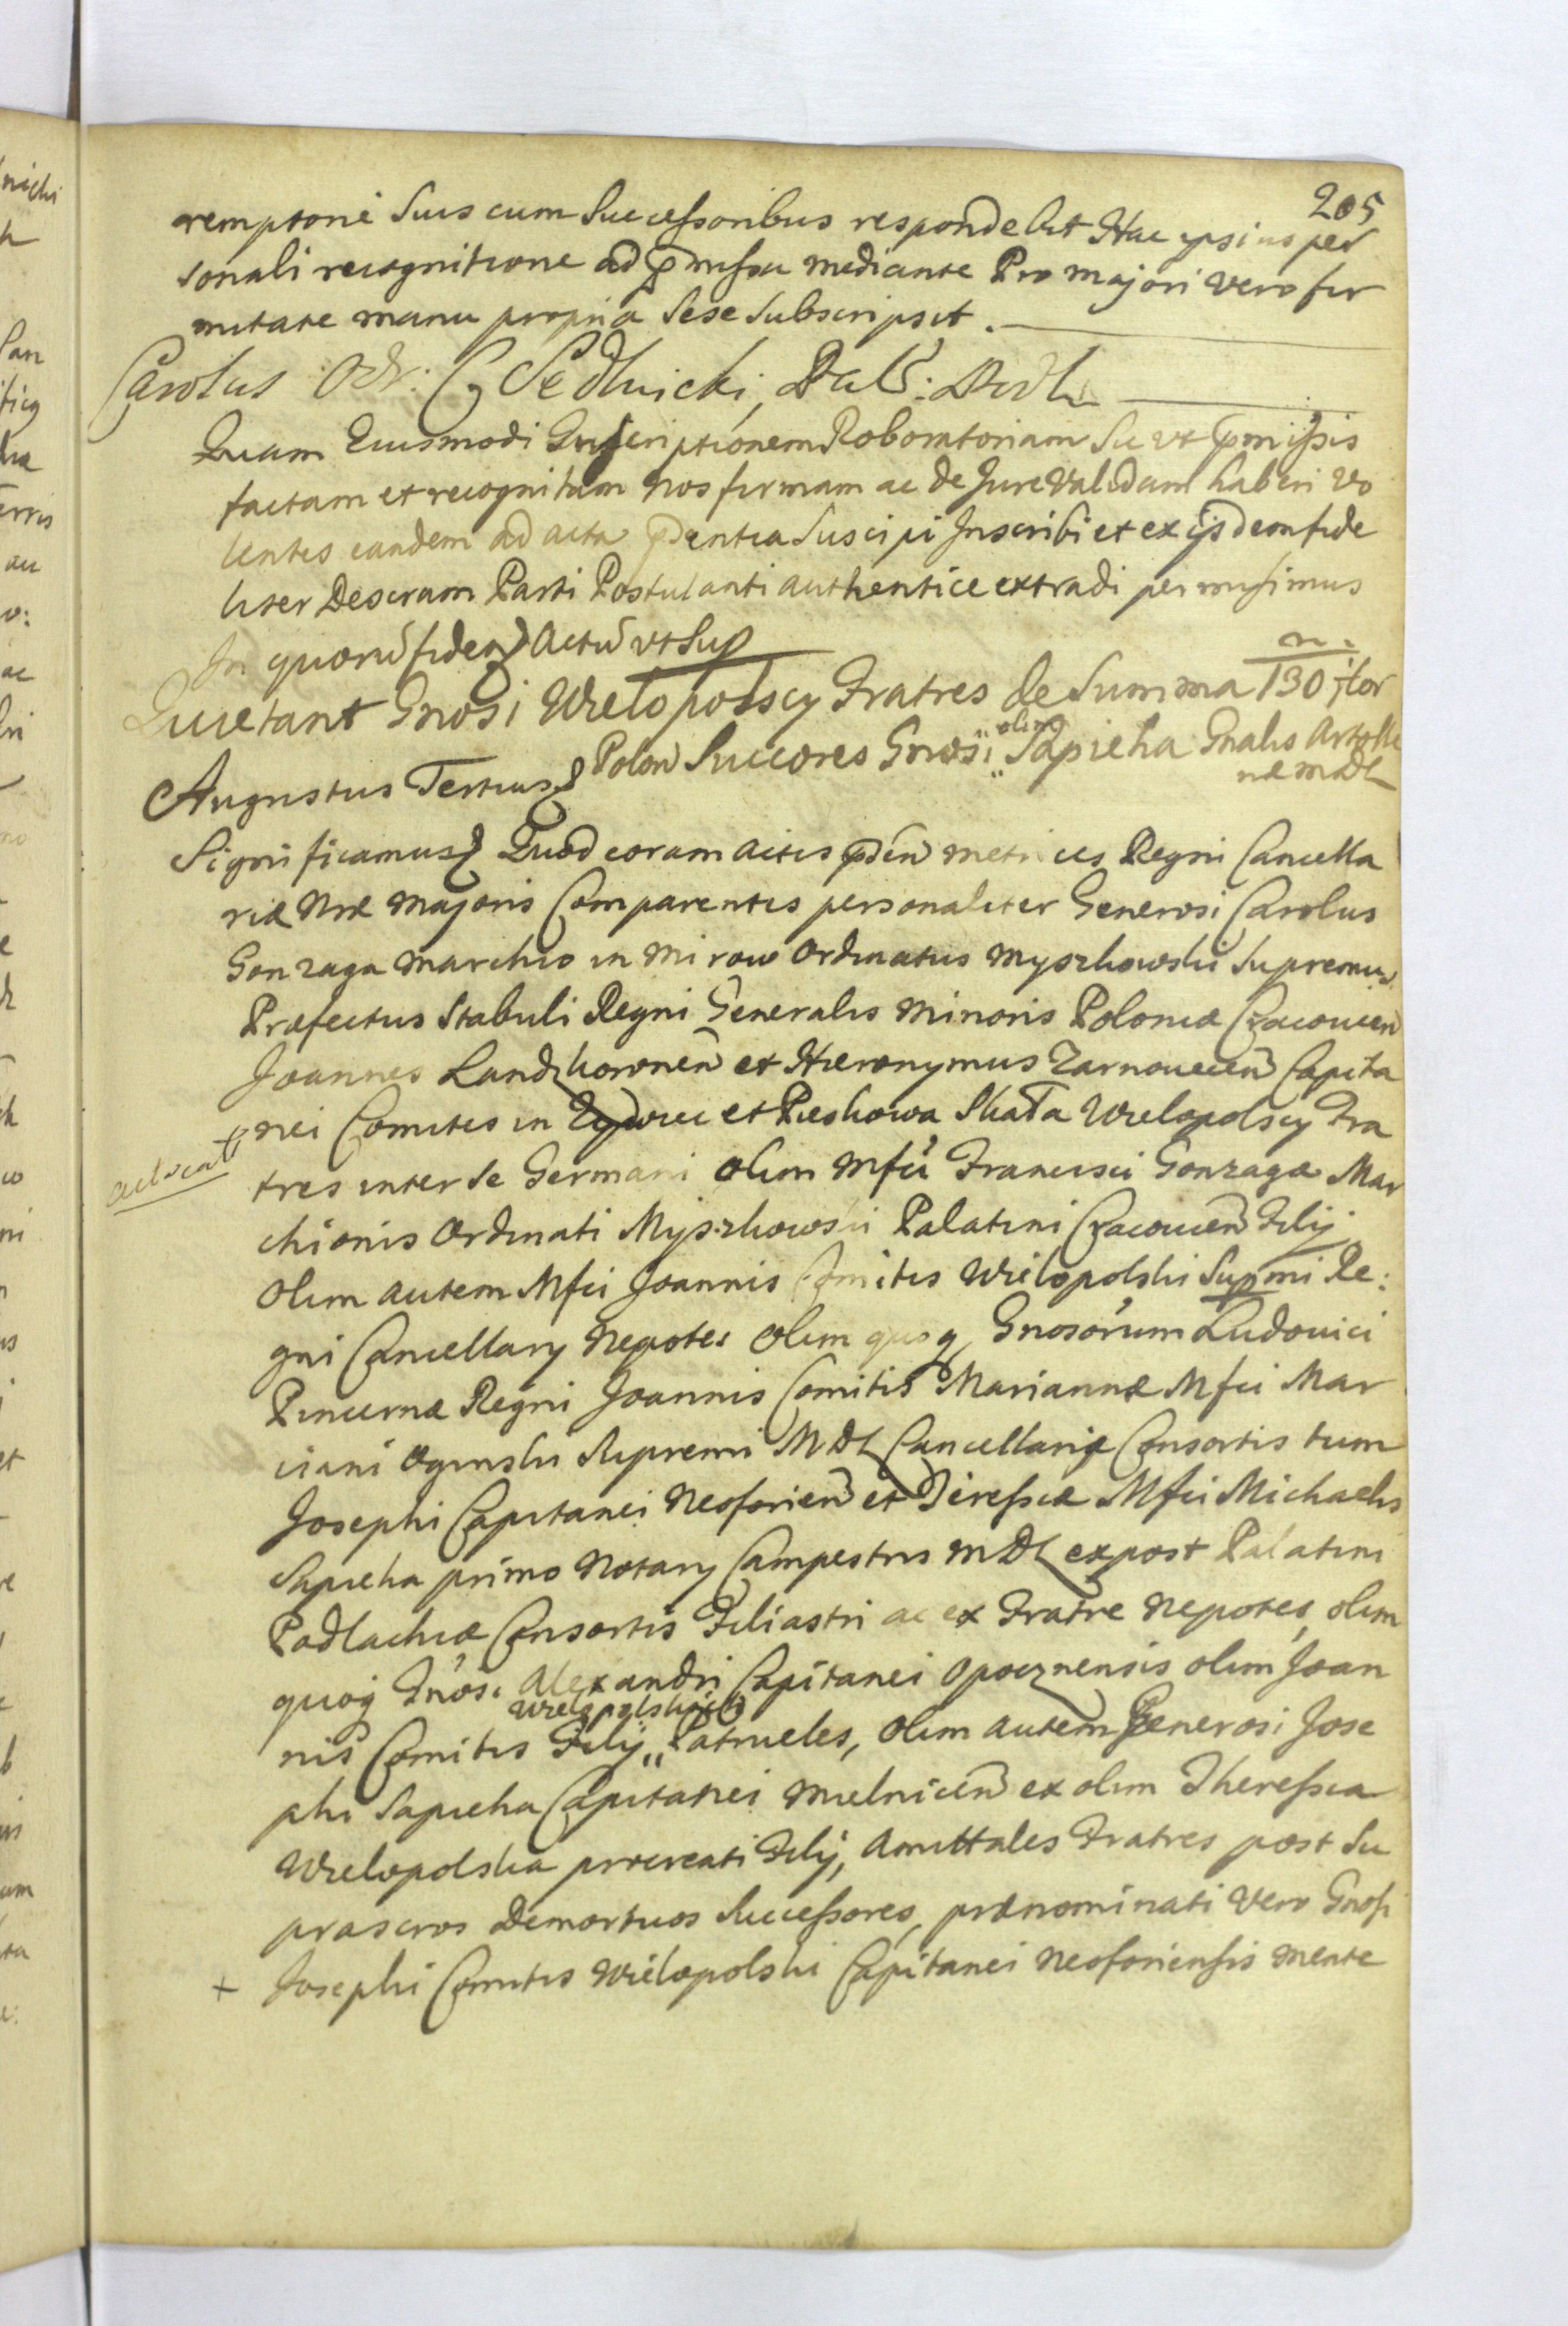 205
remptorie Suis cum Successoribus respondebit Hac ipsius per
sonali recognitione ad pmissa mediante Pro majori vero fir
mitate manu propria Sese Subscripsit.
Carolus Odr: C Sedlnicki, Pals: Podl
Quam Eiusmodi Inscriptionem Roboratoriam Sic ut pmissis
factam et recognitam Nos firmam ac de Jure Validam haberi vo
lentes eandem ad acta pdentia Suscipi Inscribi et ex ijsdem fide
liter Descram Parti Postulanti authentice extradi permisimus
In quorũ fidem Actũ ut Sup
Quietant Gnosi Wielopolscy Fratres de Summa 130 m flor
Polon Succores Gnosi olim Sapieha Gnalis Artolle
riæ MDL
Augustus Tertius
Significamus Quod coram actis pden Metrices Regni Cancella
riæ Nræ Majoris Comparentes personaliter Generosi Carolus
Gonzaga Marchio in Mirow Ordinatus Myszkowski Supremus
Præfectus Stabuli Regni Generalis Minoris Poloniæ Cracovien
Joannes Landzkoronen et Hieronymus Zarnovecen Capita
nei Comites in Zywiec et Pieskowa Skała Wielopolscy Fra
tres inter Se Germani olim Mfci Francisci Gonzaga Mar
chionis Ordinati Myszkowski Palatini Cracovien Filij
Olim autem Mfci Joannis Comitis Wielopolski Supmi Re:
gni Cancellarij Nepotes Olim quoq Gnosorum Ludovici
Pincernæ Regni Joannis Comitis Mariannæ Mfci Mar
ciani Oginski Supremi MDL Cancellarij Consortis tum
Josephi Capitanei Neoforien et Teressiæ Mfci Michaelis
Sapieha primo Notarij Campestris MDL expost Palatini
Podlachiæ Consortis Filiastri ac ex Fratre Nepotes, olim
quoq Gnosi Alexandri Capitanei Opocznensis olim Joan
Wielopolskich
nis Comitis Filij Patrueles, olim autem Generosi Jose
phi Sapieha Capitanei Mielnicen ex olim Theressia
Wielopolska procreati Filij, Amittales Fratres post Su
prascros Demortuos Successores, prænominati vero Gnosi
+ Josephi Comitis Wielopolski Capitanei Neoforiensis mente